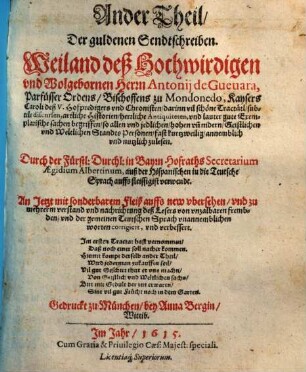 Ander Theil/
Der guldenen Sendtschreiben.
Weiland deß Hochwirdigen
vnd Wolgebornen Herrn Antonij de Gueuara,
Parfüsser Ordens/ Bischoffens zu Mondonedo, Kaysers
Caroli deß V. Hofpredigers vnd Chronisten darinn vil schöne Tractätl subti-
le discursen, artliche Historien herrliche Antiquiteten, vnd lauter gute Exem-
plarische sachen begriffen/ so allen vnd jedlichen/ hohen vñ nidern/ Geistlichen
vnd Weltlichen Standts Personen/ fast kurtzweilig/ annemblich
vnd nutzlich zulesen.
Durch der Fürstl: Durchl: in Bayrn Hofraths Secretarium
Ægidium Albertinum, auß der Hispanischen in die Teutsche
Sprach auffs fleissigist verwendt.
An Jetzo mit sonderbarem Fleiß auffs new vbersehen/ vnd zu
mehrerm verstand vnd nachrichtung deß Lesers von vnzalbaren frembb-
den/ vnd der gemeinen Teutschen Sprach vnannemblichen
worten corrigiert, vnd verbessert.
Im ersten Tractat hast vernommen/
Daß noch einer soll nacher kommen.
Hiemit kompt derselb ander Theil/
Wird jederman zukauffen feil/
Vil gut Gesichter thut er vns machn/
Von Geistlich vnd Weltlichen sachn/
Gedruckt zu München/ bey Anna Bergin/
Wittib.
Im Jahr/ 1615.
Cum Gratia & Priuilegio Cæs: Majest: speciali.
Licentiaq́; Superiorum.